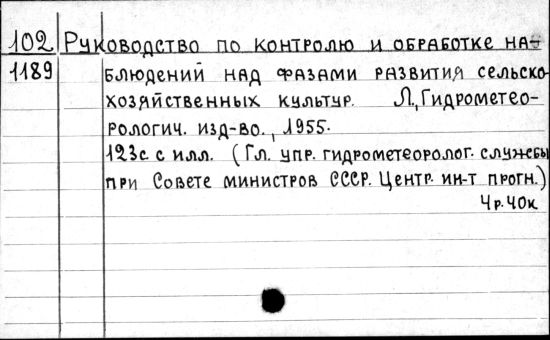 102 Руководство по контролю и обработке на-
1189 блюдений над фазами развития сельско-
хозяйственных культур. Л., Гидрометео-
рологич. изд-во., 1955.
123с. с илл. (Гл. упр. гидрометеоролог. службы
при Совете министров СССР. Центр. ин-т прогн.)
4р.40к